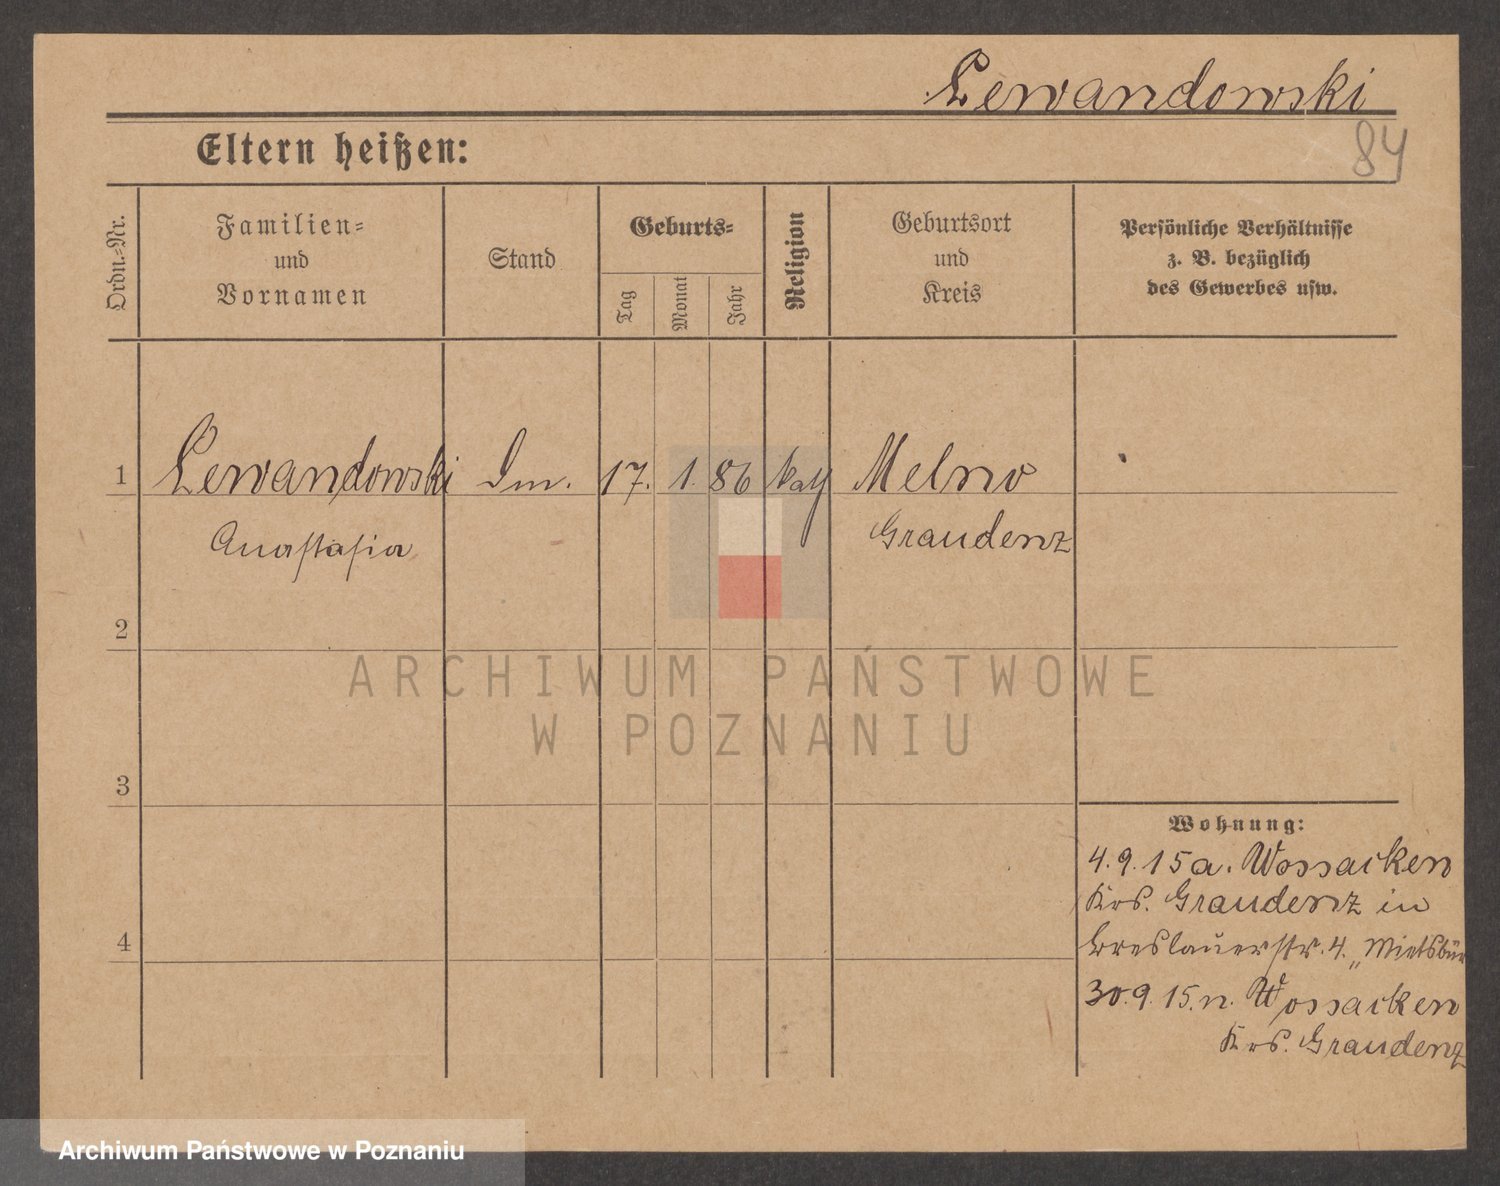 Lewandowski
84
Eltern heißen:
Ordn.=Nr.
Familien=
und
Vornamen
Stand
Geburts=
Tag
Monat
Jahr
Religion
Geburtsort
und
Kreis
Persönliche Verhältnisse
z. B. bezüglich
des Gewerbes usw.
1 Lewandowski 17. 1. 86 kath Melno
Anastasia Graudenz
2
ARCHIWUM PAŃSTWOWE
W POZNANIU
3
Wohnung:
4.9.15 a. Wossarken
Krs. Graudenz in
Breslauerstr. 4. „Mietsbür
4
30.9.15. n. Wossarken
Krs. Graudenz
Archiwum Państwowe w Poznaniu